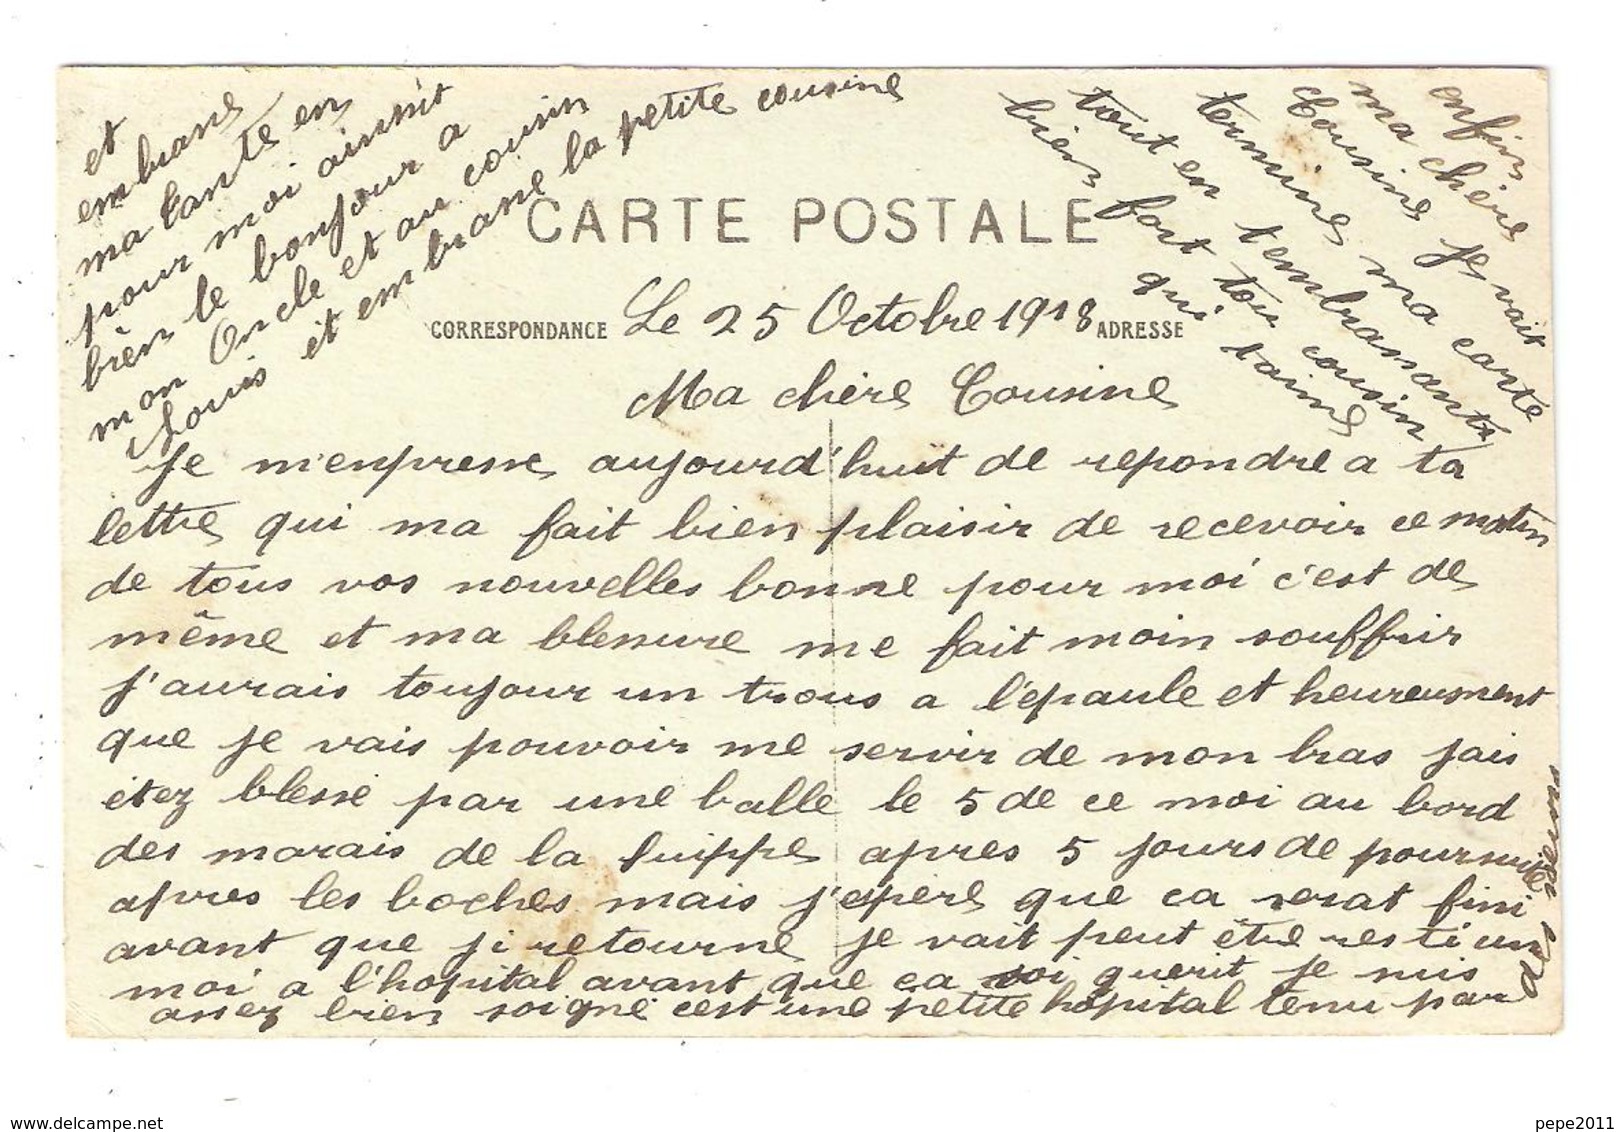 CARTE POSTALE
CORRESPONDANCE
ADRESSE
Le 25 Octobre 1918
Ma chère Cousine
Je m'enpresse aujourd'huit de repondre a ta
lettre qui ma fait bien plaisir de recevoir ce matin
de tous vos nouvelles bonne pour moi c'est de
même et ma blessure me fait moin souffrir
j'aurais toujour un trous a l'épaule et heureusment
que je vais pouvoir me servir de mon bras jais
étez blessé par une balle le 5 de ce moi au bord
des marais de la Suippe apres 5 jours de poursuite
apres les boches mais j'espere que ca serat fini
avant que ji retourne je vait peut être resti un
moi a l'hopital avant que ça soi querit je suis
assez bien soigné cest une petite hôpital tenu par
enfin
ma chère
Cousine je vait
termine ma carte
tout en tembrassante
bien fort tou cousin
qui taime
et
embrasse
ma tante en
pour moi ainsit
bien le bonjour a
mon Oncle et au cousin
Louis et embrasse la petite cousine
pepe2011